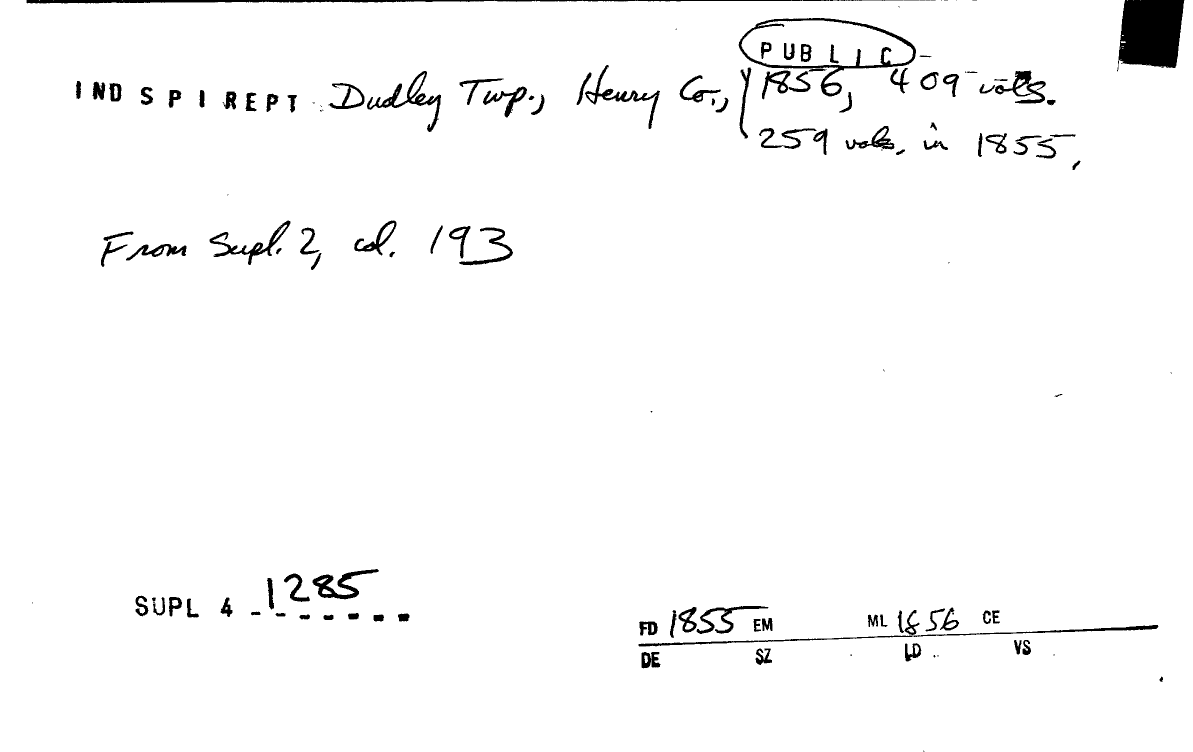 PUBLIC
IND SPI REPT Dudley Twp., Henry Co., 1856, 409 vols.
259 vols. in 1855.
From Supl. 2, col. 193
SUPL 4 1285
FD 1855 EM ML 1856 CE
DE SZ LD VS